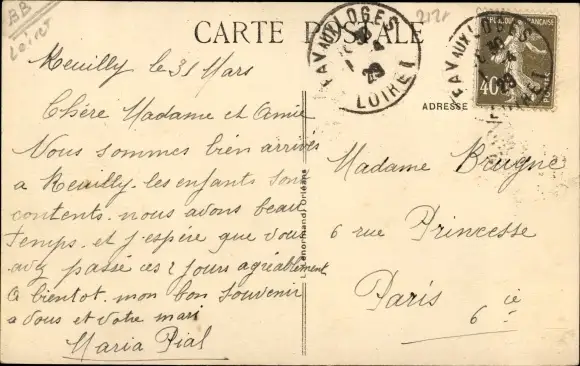 BB
Loiret
CARTE POSTALE
FAY AUX LOGES
LOIRET
29
REPUBLIQUE FRANÇAISE
40c
POSTES
FAY AUX LOGES
LOIRET
29
ADRESSE
Reuilly le 31 Mars
Chère Madame et Amie
Nous sommes bien arrivés
a Reuilly. les enfants sont
contents. nous avons beau
temps. et j'espère que vous
avez passé ces 2 jours agréablement
a bientot. mon bon souvenir
a vous et votre mari
Maria Pial
L. Lenormand, Orléans
Madame Brugne
6 rue Princesse
Paris
6 ie